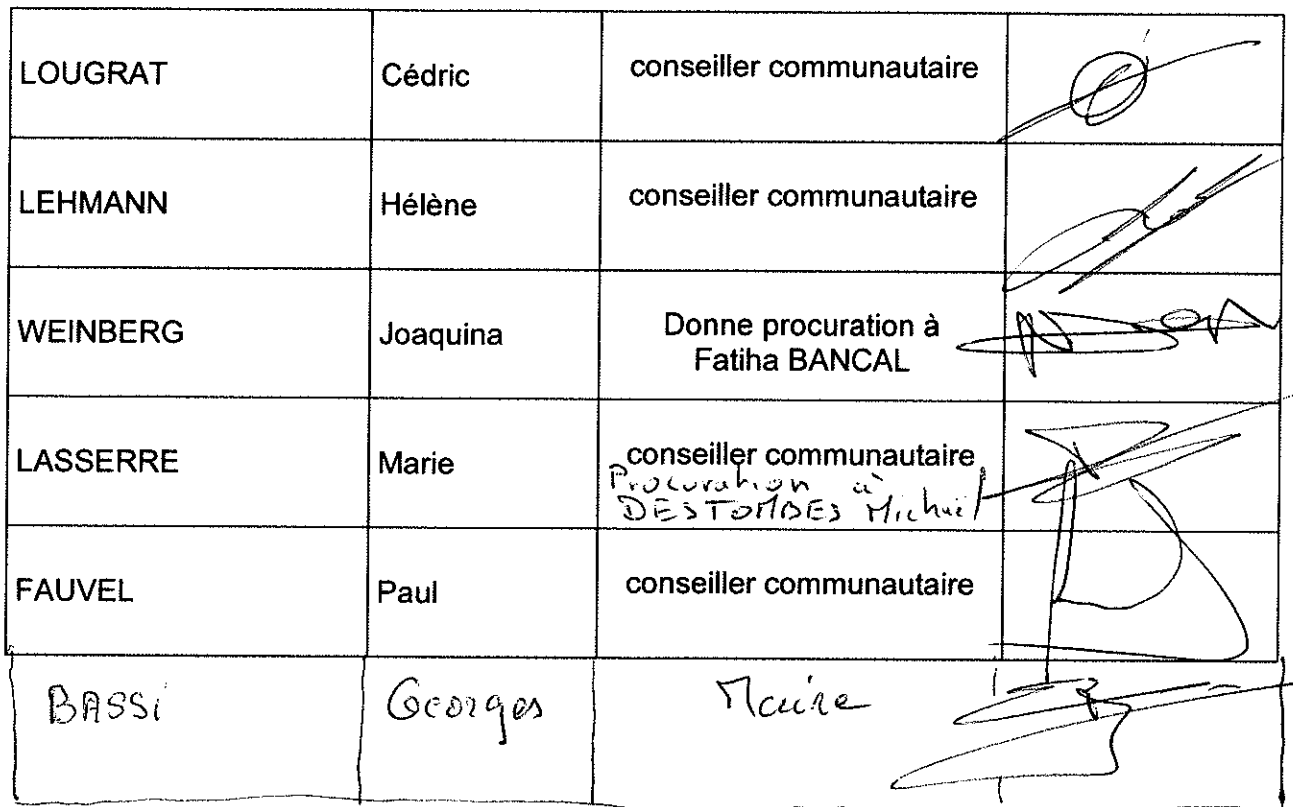 LOUGRAT Cédric conseiller communautaire
LEHMANN Hélène conseiller communautaire
WEINBERG Joaquina Donne procuration à
Fatiha BANCAL
LASSERRE Marie conseiller communautaire
Procuration à
DESTOMBES Michaël
FAUVEL Paul conseiller communautaire
BASSi Georges Maire